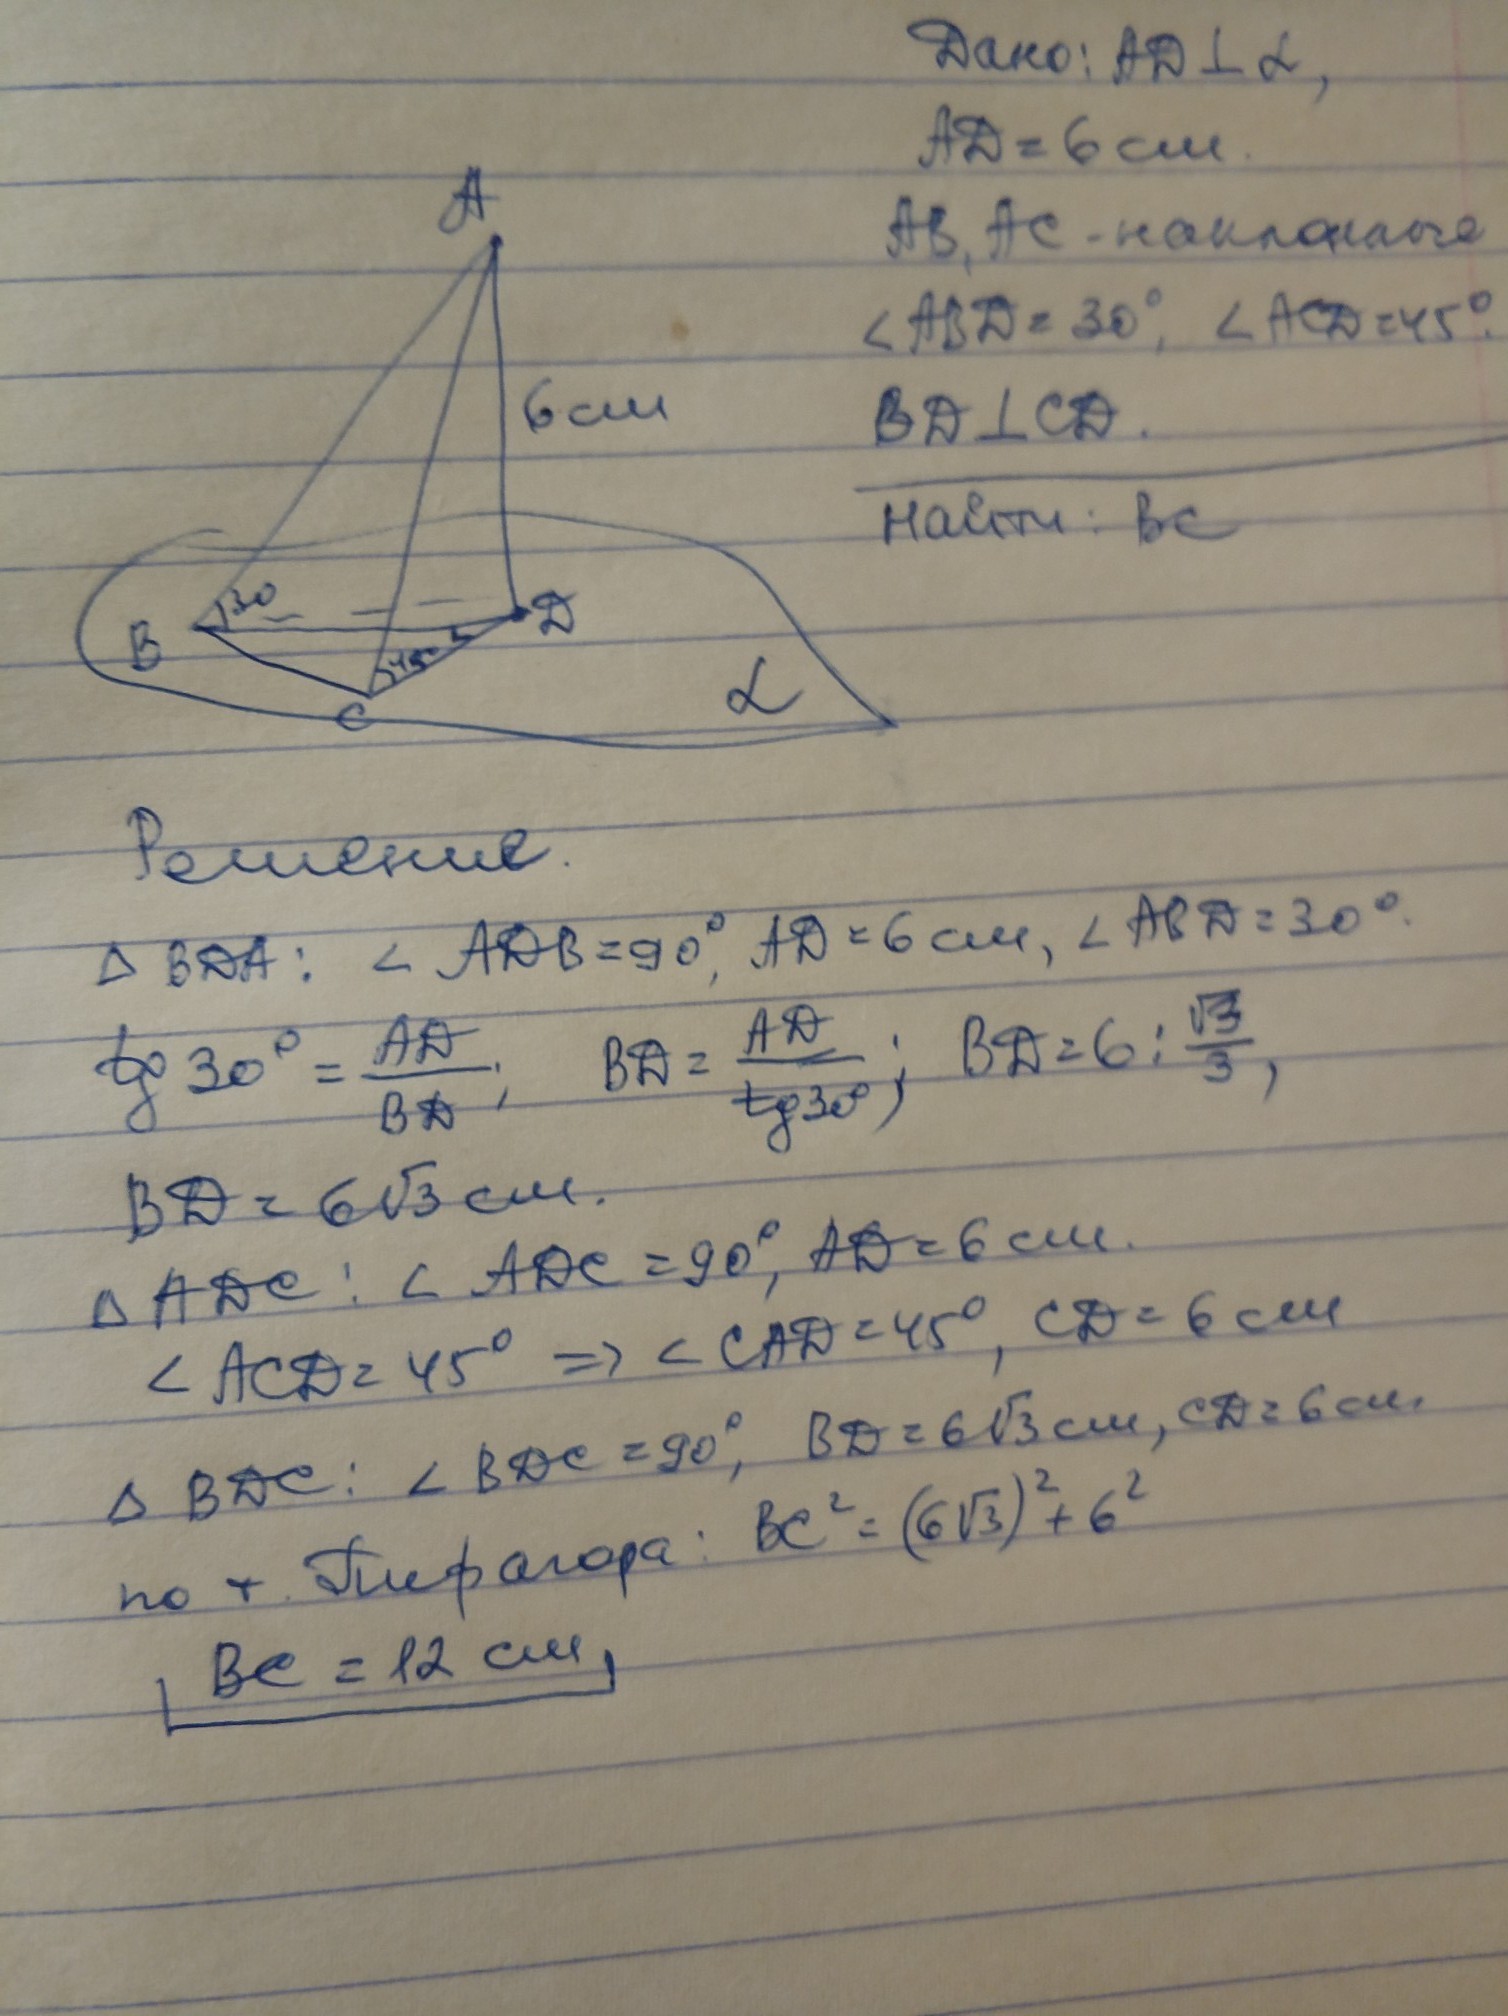 Дано: AD⊥α,
AD = 6 см.
AB, AC - наклонные
∠ABD = 30°, ∠ACD = 45°.
BD⊥CD.
Найти: BC
A
6 см
B
30
D
45°
C
α
Решение.
△ BDA: ∠ADB = 90°, AD = 6 см, ∠ABD = 30°.
tg 30° = AD/BD; BD = AD/tg30°; BD = 6 : √3/3,
BD = 6√3 см.
△ ADC: ∠ADC = 90°, AD = 6 см.
∠ACD = 45° => ∠CAD = 45°, CD = 6 см
△ BDC: ∠BDC = 90°, BD = 6√3 см, CD = 6 см.
по т. Пифагора: BC² = (6√3)² + 6²
BC = 12 см